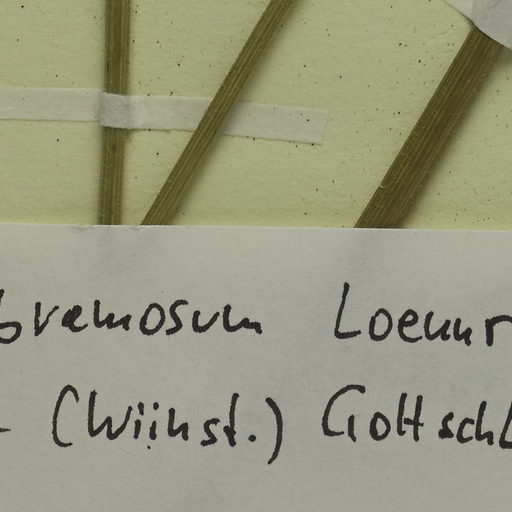 bramosum Loennr
(Wiinst.) Gottschl